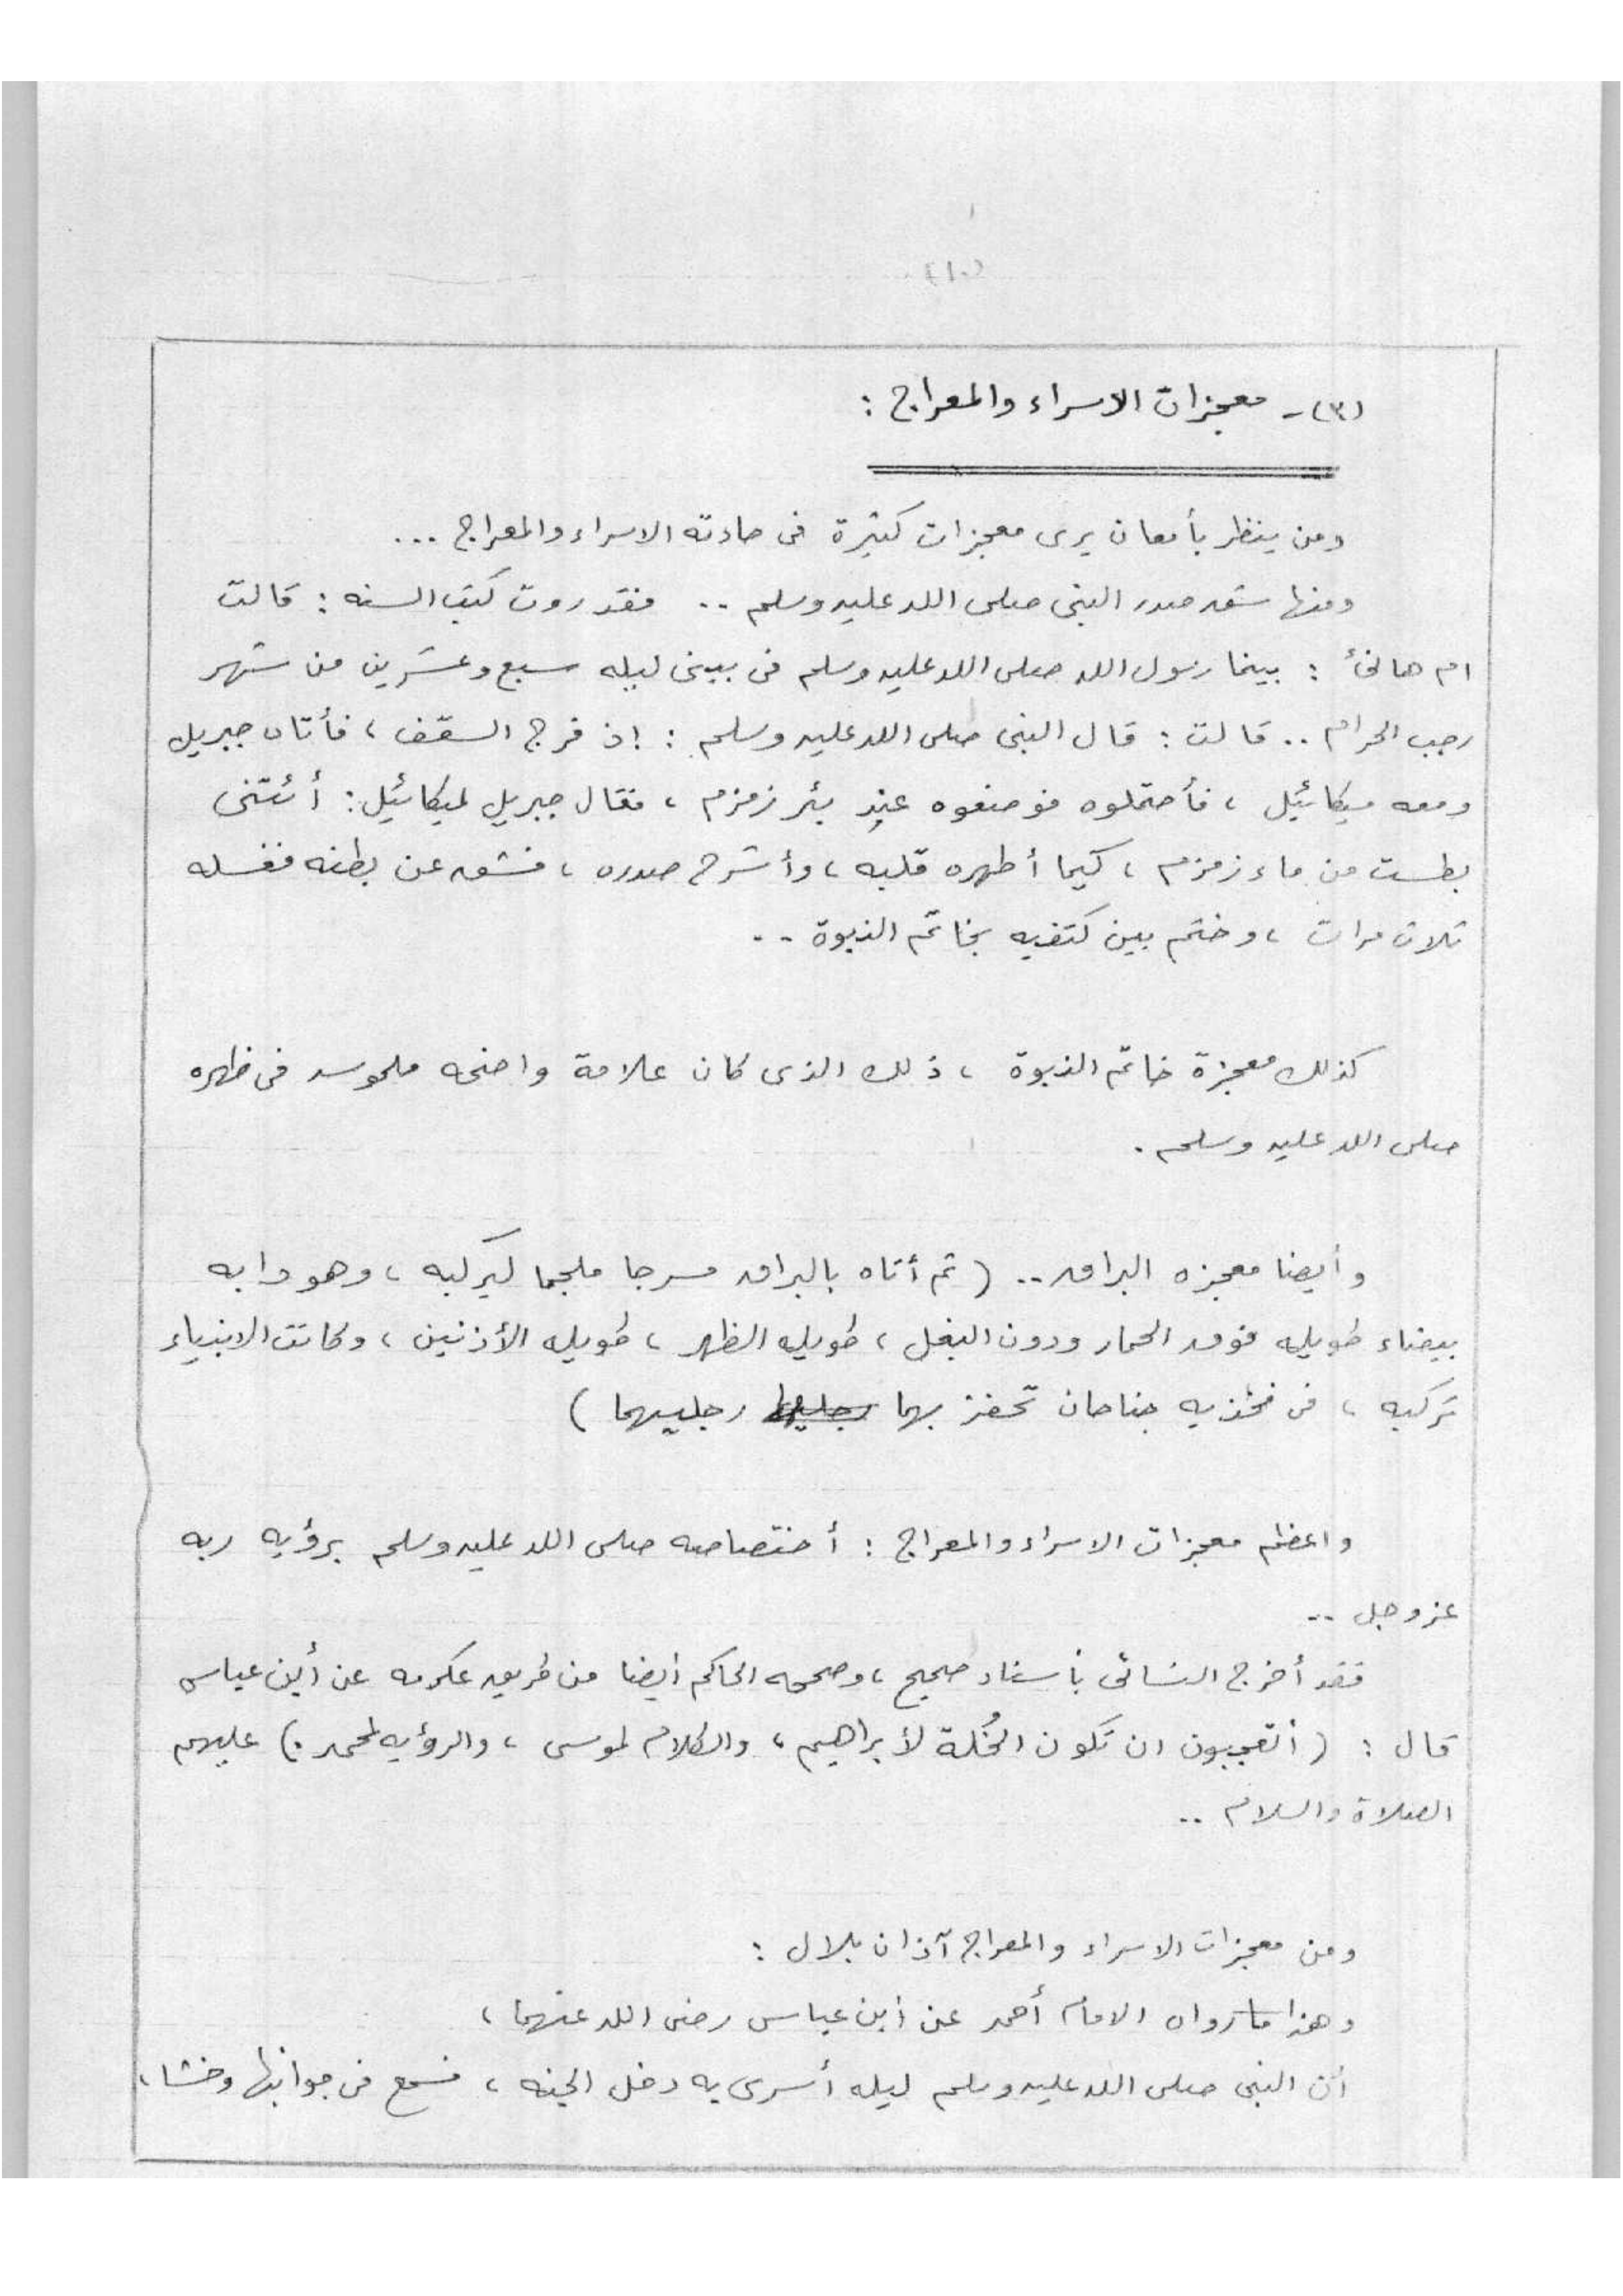 (١٠)
(٣) - معجزات الاسراء والمعراج :
ومن ينظر بأمعان يرى معجزات كثيرة فى حادثه الاسراء والمعراج ...
ومنها شق صدر النبى صلى الله عليه وسلم .. فقد روت كتب السنه : قالت
ام هانئ : بينما رسول الله صلى الله عليه وسلم فى بيتى ليله سبع وعشرين من شهر
رجب الحرام .. قالت : قال النبى صلى الله عليه وسلم : إذ فرج السقف ، فأتاه جبريل
ومعه ميكائيل ، فأحتملوه فوضعوه عند بئر زمزم ، فقال جبريل لميكائيل : أئتنى
بطست من ماء زمزم ، كيما أطهره قلبه ، وأشرح صدره ، فشق عن بطنه فغسله
ثلاث مرات ، وختم بين كتفيه بخاتم النبوة ..
كذلك معجزة خاتم النبوة ، ذلك الذى كان علامة واضحه ملموسه فى ظهره
صلى الله عليه وسلم .
وأيضا معجزه البراق .. ( ثم أتاه بالبراق مسرجا ملجما ليركبه ، وهو دابه
بيضاء طويله فوق الحمار ودون البغل ، طويله الظهر ، طويله الأذنين ، وكانت الانبياء
تركبه ، فى فخذيه جناحان تحفز بهما رجليها رجليهما )
واعظم معجزات الاسراء والمعراج : أختصاصه صلى الله عليه وسلم برؤيه ربه
عز وجل ..
فقد أخرج النسائى بأسناد صحيح ، وصححه الحاكم أيضا من طريق عكرمه عن أبن عباس
قال : ( أتعجبون ان تكون الخُلة لأبراهيم ، والكلام لموسى ، والرؤيه لمحمد .) عليهم
الصلاة والسلام ..
ومن معجزات الاسراء والمعراج آذان بلال :
وهذا ما رواه الامام أحمد عن أبن عباس رضى الله عنهما ،
أن النبى صلى الله عليه وسلم ليله أسرى به دخل الجنه ، فسمع فى جوانبها وخشا ،